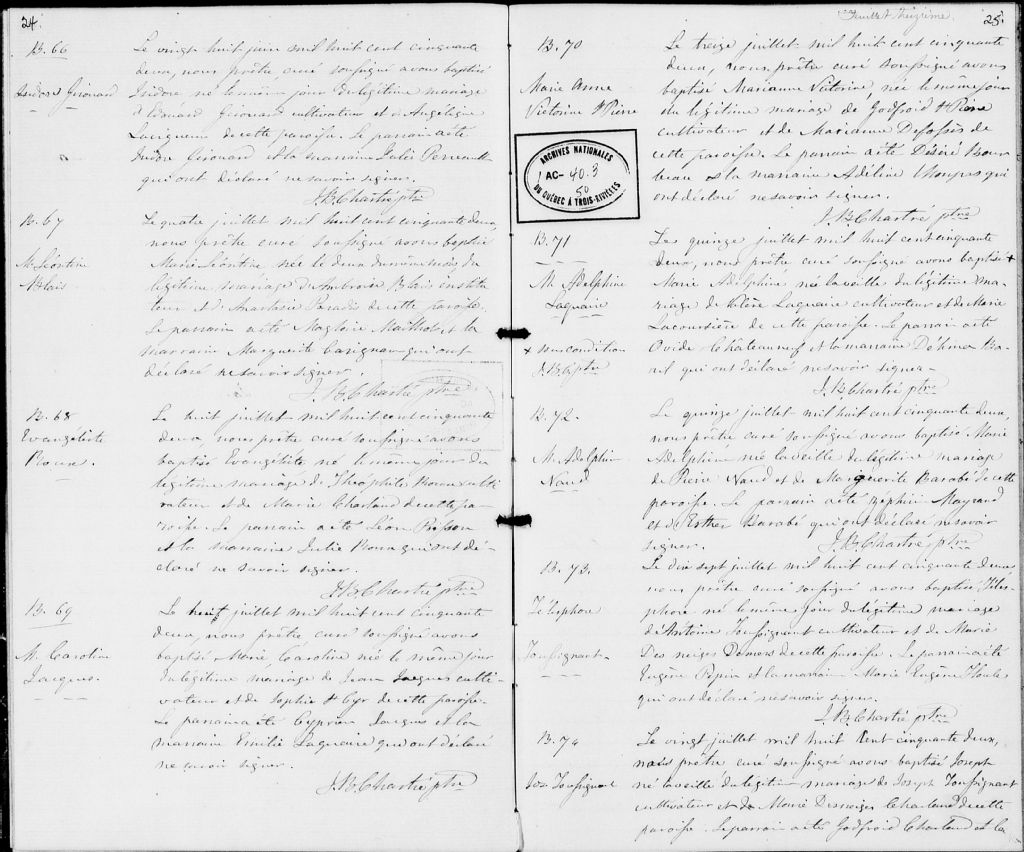 24.
B. 66
Isidore Girouard
Le vingt huit juin mil huit cent cinquante
deux, nous prêtre curé soussigné avons baptisé
Isidore né le même jour du légitime mariage
d'Edouard Girouard cultivateur et d'Angélique
Lavigueur de cette paroisse. Le parrain a été
Isidore Girouard et la marraine Julie Perreault
qui ont déclaré ne savoir signer.
J. B. Chartré ptre
B. 67
M. Léontine
Blais
Le quatre juillet mil huit cent cinquante deux,
nous prêtre curé soussigné avons baptisé
Marie Léontine née le deux du même mois du
légitime mariage d'Ambroise Blais institu
teur et d'Anastasie Paradis de cette paroisse.
Le parrain a été Magloire Mailhot et la
marraine Marguerite Carignan qui ont
déclaré ne savoir signer.
J. B. Chartré ptre
B. 68
Evangéliste
Roux.
Le huit juillet mil huit cent cinquante
deux, nous prêtre curé soussigné avons
baptisé Evangéliste né le même jour du
légitime mariage de Théophile Roux culti
vateur et de Marie Charland de cette pa-
roisse. Le parrain a été Léon
et la marraine Julie Roux qui ont dé-
claré ne savoir signer.
J. B. Chartré ptre
B. 69
M. Caroline
Jacques.
Le huit juillet mil huit cent cinquante
deux, nous prêtre curé soussigné avons
baptisé Marie Caroline née le même jour
du légitime mariage de Jean Jacques culti-
vateur et de Sophie St Cyr de cette paroisse.
Le parrain a été Cyprien Jacques et la
marraine Emilie Laquaire qui ont déclaré
ne savoir signer.
J. B. Chartré ptre
Feuillet treizième.
25.
B. 70
Marie Anne
Victorine St Pierre
ARCHIVES NATIONALES
AC- 40.3
50
DU QUÉBEC À TROIS-RIVIÈRES
Le treize juillet mil huit cent cinquante
deux, nous prêtre curé soussigné avons
baptisé Marianne Victorine née le même jour
du légitime mariage de Godfroid St Pierre
cultivateur et de Marianne Defossés de
cette paroisse. Le parrain a été Désiré Bour
beau et la marraine Adéline qui
ont déclaré ne savoir signer.
J. B. Chartré ptre
B. 71
M. Adelphine
Laquaire
+ sous condition
J. B. C. ptre
Le quinze juillet mil huit cent cinquante
deux, nous prêtre curé soussigné avons baptisé +
Marie Adelphine née la veille du légitime ma-
riage de Laquaire cultivateur et de Marie
Lacoursière de cette paroisse. Le parrain a été
Ovide Châteauneuf et la marraine
qui ont déclaré ne savoir signer.
J. B. Chartré ptre
B. 72.
M. Adelphine
Naud
Le quinze juillet mil huit cent cinquante deux,
nous prêtre curé soussigné avons baptisé Marie
Adelphine née la veille du légitime mariage
de Pierre Naud et de Marguerite Barabé de cette
paroisse. Le parrain a été Zéphirin Magnand
et Esther Barabé qui ont déclaré ne savoir
signer.
J. B. Chartré ptre
B. 73.
Télesphore
Toussignant
Le dix sept juillet mil huit cent cinquante deux
nous prêtre curé soussigné avons baptisé Téles-
phore né le même jour du légitime mariage
d'Antoine Toussignant cultivateur et de Marie
Des neiges Demers de cette paroisse. Le parrain a été
Eugène Pepin et la marraine Marie Eugène Houle
qui ont déclaré ne savoir signer.
J. B. Chartré ptre
B. 74
Jos Toussignant
Le vingt juillet mil huit cent cinquante deux,
nous prêtre curé soussigné avons baptisé Joseph
né la veille du légitime mariage de Joseph Toussignant
cultivateur et de Marie Desneiges Charland de cette
paroisse. Le parrain a été Godfroid Charland et la